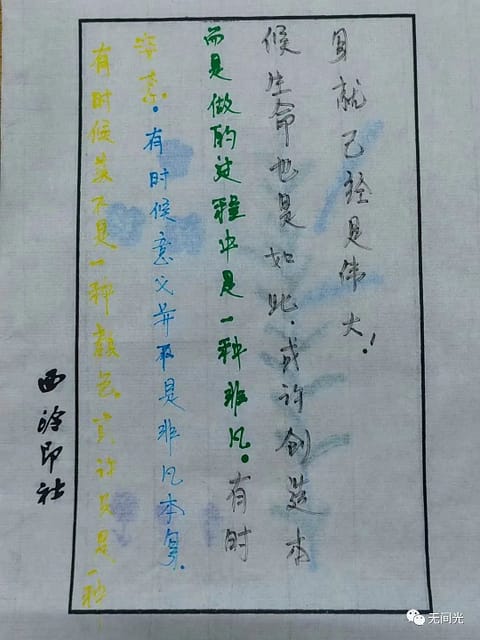 有时候美不是一种颜色。许只是一种
素。有时候意义并不是非凡本身.
而是做的过程中是一种非凡。有时
候生命也是如此.或许创造本
身就已经是伟大!
西泠印社
无间光